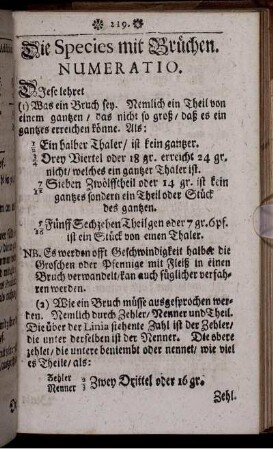 219.
Die Species mit Brüchen.
NUMERATIO.
Diese lehret
(1) Was ein Bruch sey. Nemlich ein Theil von
einem gantzen / das nicht so groß / daß es ein
gantzes erreichen könne. Als:
1/2 Ein halber Thaler / ist kein gantzer.
3/4 Drey Viertel oder 18 gr. erreicht 24 gr.
nicht / welches ein gantzer Thaler ist.
7/12 Sieben Zwölfftheil oder 14 gr. ist kein
gantzes sondern ein Theil oder Stück
des gantzen.
5/16 Fünff Sechzehen Theilgen oder 7 gr. 6 pf.
ist ein Stück von einen Thaler.
NB. Es werden offt Geschwindigkeit halber die
Groschen oder Pfennige mit Fleiß in einen
Bruch verwandelt / kan auch füglicher verfah-
ren werden.
(2) Wie ein Bruch müsse ausgesprochen wer-
den. Nemlich durch Zehler / Nenner und Theil.
Die über der Linia stehente Zahl ist der Zehler /
die unter derselben ist der Nenner. Die obere
zehlet / die untere beniembt oder nennet / wie viel
es Theile / als:
Zehler 2
Nenner 3 Zwey Drittel oder 16 gr.
Zehl.